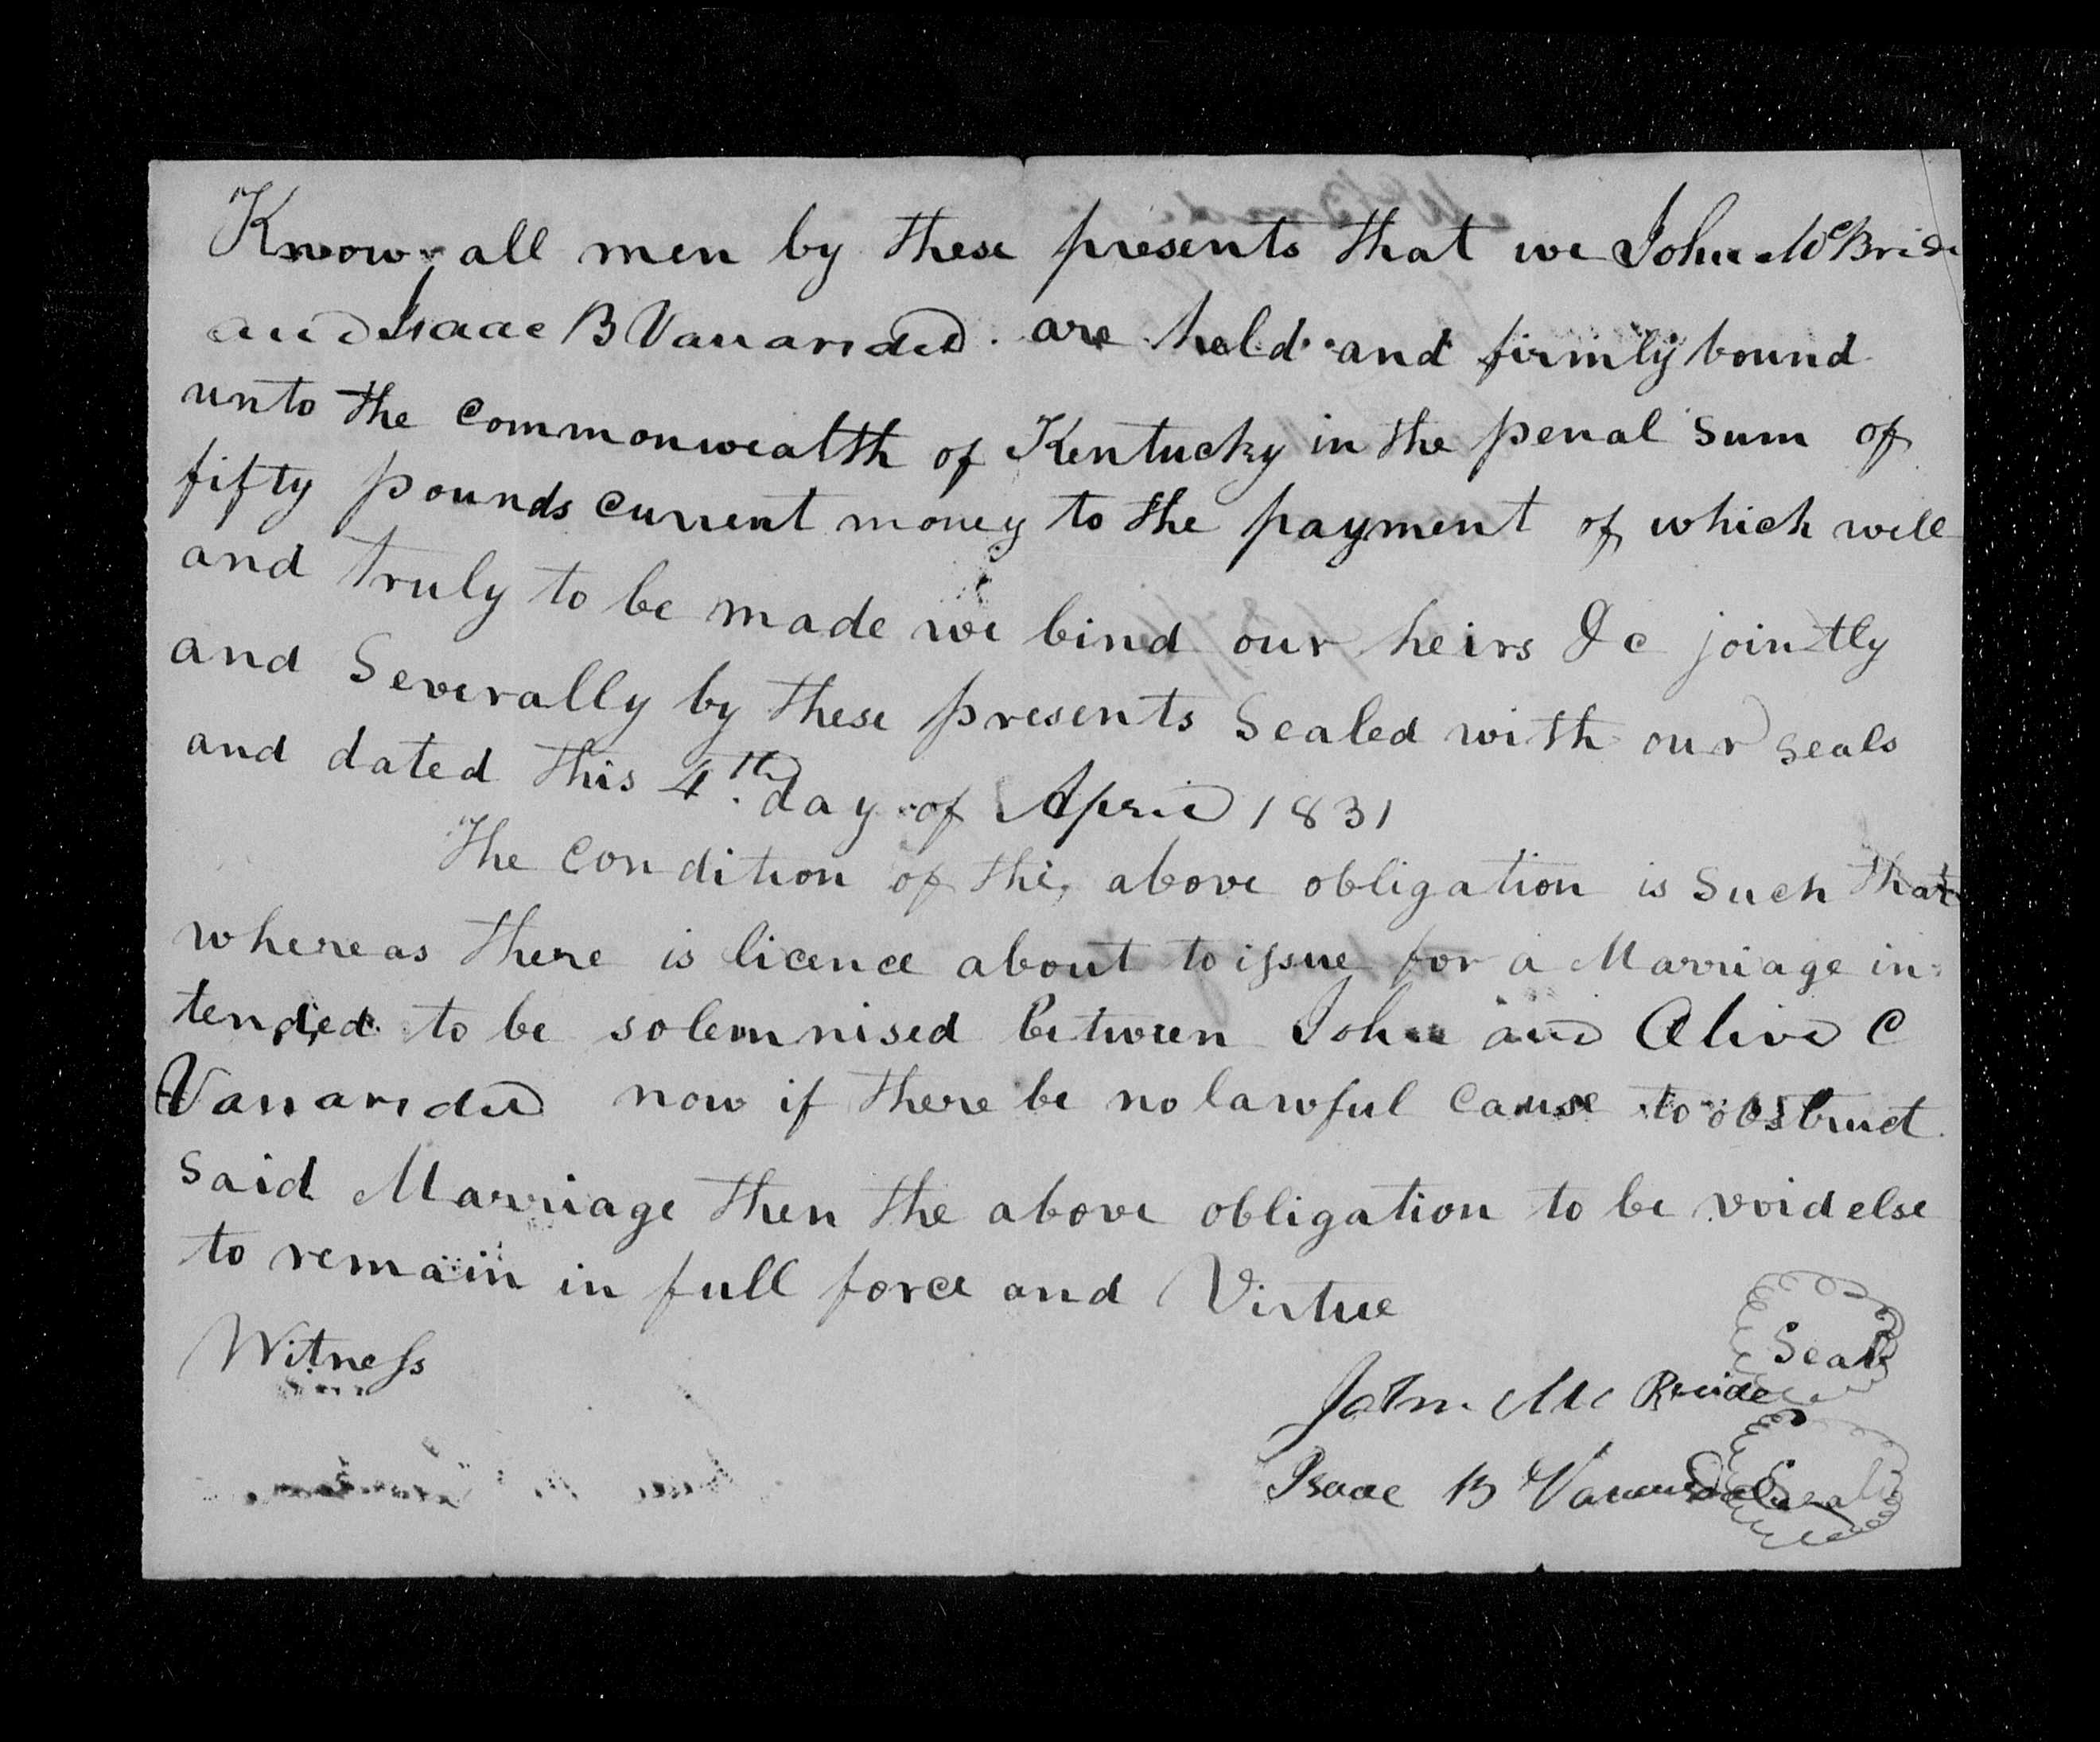 Know all men by these presents that we John McBride
and Isaac B Vanarsdel are held and firmly bound
unto the commonwealth of Kentucky in the penal sum of
fifty pounds current money to the payment of which well
and truly to be made we bind our heirs &c jointly
and Severally by these presents Sealed with our seals
and dated this 4th day of April 1831
The condition of the above obligation is Such that
whereas there is licence about to issue for a Marriage in
tended to be solemnised Between John and Alive C
Vanarsdel now if there be no lawful cause to obstruct
Said Marriage then the above obligation to be void else
to remain in full force and Virtue
Witness
Seal
John Mc Bride
Isaac B Seal